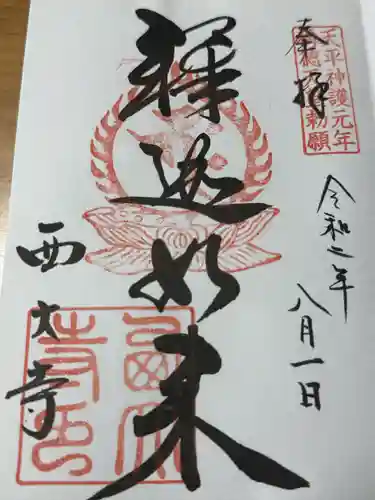 奉拝
天平神護元年
称徳天皇勅願
令和二年
八月一日
釋迦如来
西大寺